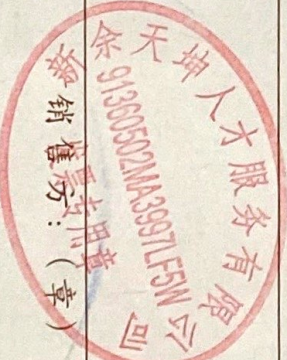 新余天坤人才服务有限公司
91360502MA3997LF5W
发票专用章
销售方：（章）